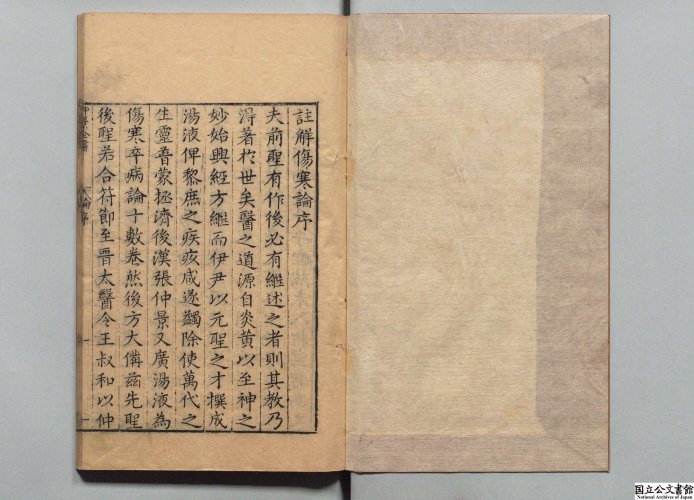 註解傷寒論序
夫前聖有作後必有繼述之者則其教乃
得著於世矣醫之道源自炎黃以至神之
妙始興經方繼而伊尹以元聖之才撰成
湯液俾黎庶之疾疚咸遂蠲除使萬代之
生靈普蒙拯濟後漢張仲景又廣湯液為
傷寒卒病論十數卷然後方大備茲先聖
後聖若合符節至晉太醫令王叔和以仲
仲景全書
論序
一
国立公文書館
National Archives of Japan